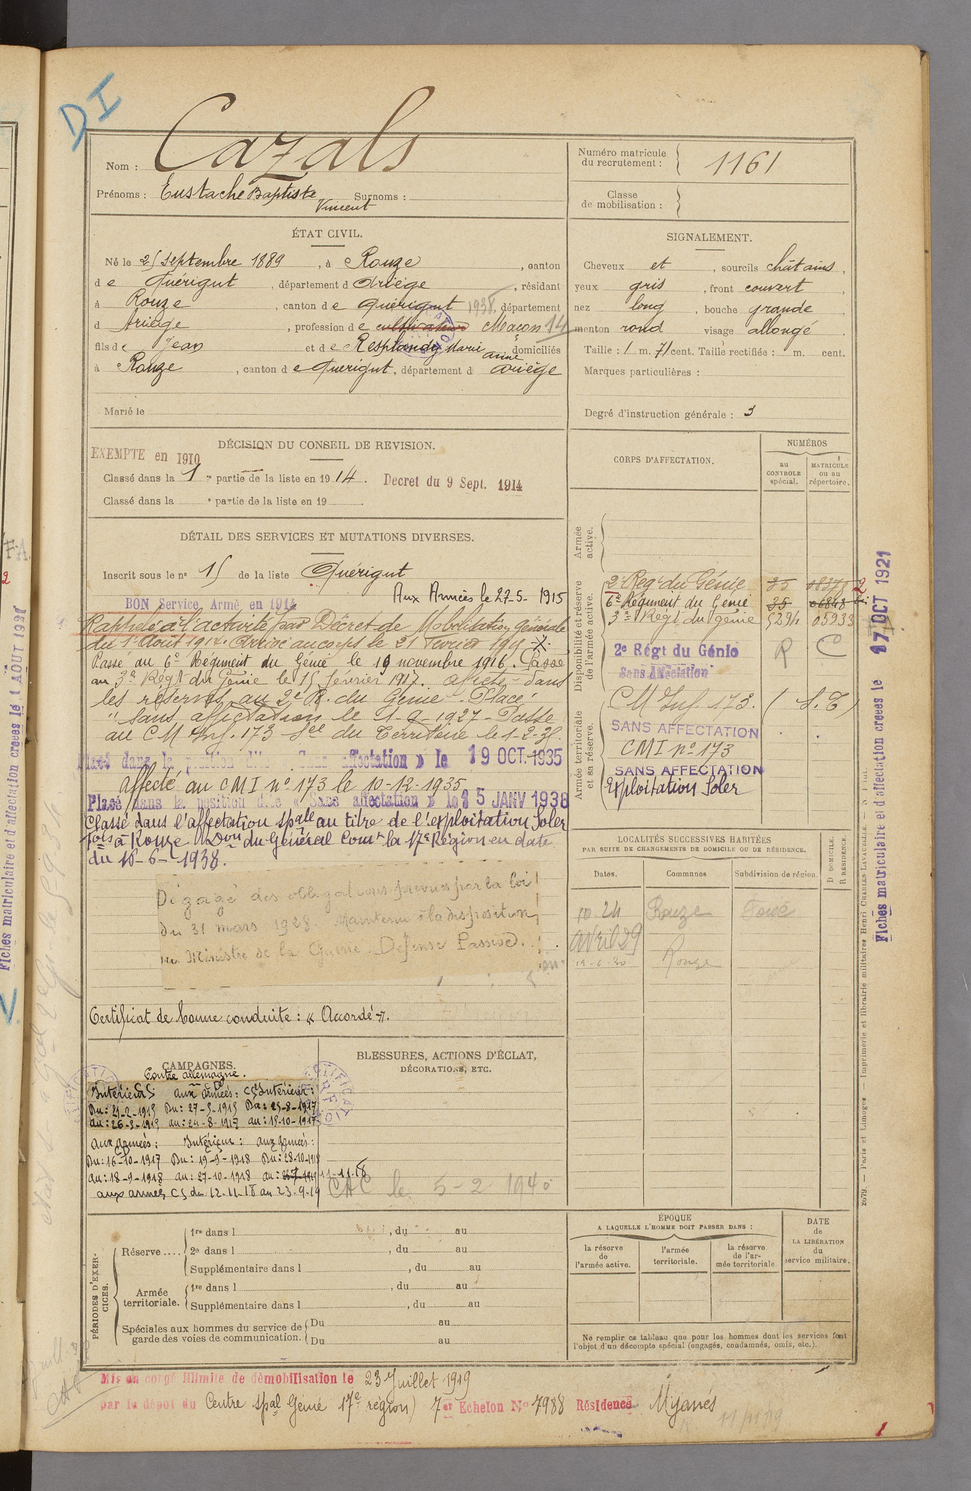 DI
Nom : Cazals
Prénoms : Eustache Baptiste Surnoms :
Vincent
Numéro matricule
du recrutement : 1161
Classe
de mobilisation :
ÉTAT CIVIL.
Né le 25 Septembre 1889, à Rouze, canton
de Quérigut, département d'Ariège, résidant
à Rouze, canton de Quérigut 1938, département
d Ariège, profession de cultivateur Macon 14
fils de Jean et de Resplandy Marie Anne domiciliés
à Rouze, canton de Quérigut, département d Ariège
Marié le
SIGNALEMENT.
Cheveux et, sourcils châtains,
yeux gris, front couvert,
nez long, bouche grande,
menton rond visage allongé
Taille : 1 m. 71 cent. Taille rectifiée : 1 m. cent.
Marques particulières :
Degré d'instruction générale : 3
DÉCISION DU CONSEIL DE REVISION.
EXEMPTE en 1910
Classé dans la 1re partie de la liste en 1914. Decret du 9 Sept. 1914
Classé dans la e partie de la liste en 19
CORPS D'AFFECTATION.
NUMÉROS
au
CONTROLE
spécial.
MATRICULE
ou au
répertoire.
DÉTAIL DES SERVICES ET MUTATIONS DIVERSES.
Inscrit sous le no 15 de la liste Quérigut
BON Service Armé en 1914
Aux Armées le 27-5-1915
Rappelé à l'activité par Décret de Mobilisation Générale
du 1er Août 1914. Arrivé au corps le 21 Février 1915
Passé au 6e Régiment du Génie le 19 novembre 1916. Passé
au 3e Régt du Génie le 15 février 1917. Affecté dans
les réserves au 2e R. du Génie - Placé
"Sans affectation le 1-9-1927 - Passé
au CM Inf. 173 du Territoire le 1-2-35
Placé dans la position dite « Sans affectation » le 19 OCT. 1935
Affecté au CMI no 173 le 10-12-1935
Placé dans la position dite « Sans affectation » le 15 JANV 1938
Classé dans l'affectation spale au titre de l'exploitation Soler
fois à Rouze Don du Général Comt la 17e Région en date
du 18-6-1938.
Dégagé des obligations prévues par la loi
du 31 mars 1928. Maintenu à la disposition
du Ministre de la Guerre - Défense Passive.
Certificat de bonne conduite : « Accordé ».
Armée
active.
Disponibilité et réserve
de l'armée active.
Armée territoriale
et sa réserve.
2e Regt du Génie
6e Régiment du Genie
3e Régt du génie
2e Régt du Génie
Sans Affectation
R C
CM Inf. 173. (S.T)
SANS AFFECTATION
CMI no 173
SANS AFFECTATION
Exploitation Soler
LOCALITÉS SUCCESSIVES HABITÉES
PAR SUITE DE CHANGEMENTS DE DOMICILE OU DE RÉSIDENCE.
Dates.
Communes
Subdivision de région.
D DOMICILE.
R RÉSIDENCE.
10.24 Rouze Foix
avril 29
Rouze
CAMPAGNES.
Contre allemagne.
Intérieur aux armées : CS Intérieur :
Du : 21-2-1915 Du : 27-5-1915 Du : 25-8-1917
au : 26-5-1915 au : 24-8-1917 au : 15-10-1917
aux armées : Intérieur : aux armées :
Du : 16-10-1917 Du : 19-9-1918 Du : 28-10-1918
au : 18-9-1918 au : 27-10-1918 au : 11-11-18
aux armées CS du 12-11-18 au 23-9-19
BLESSURES, ACTIONS D'ÉCLAT,
DÉCORATIONS, ETC.
CAC le 5-2-1940
PÉRIODES D'EXERCICES.
Réserve ....
1re dans l , du au
2e dans l , du au
Supplémentaire dans l , du au
Armée
territoriale.
1re dans l , du au
Supplémentaire dans l , du au
Spéciales aux hommes du service de
garde des voies de communication.
Du au
Du au
ÉPOQUE
A LAQUELLE L'HOMME DOIT PASSER DANS :
la réserve
de
l'armée active.
l'armée
territoriale.
la réserve
de l'armée territoriale.
DATE
de
LA LIBÉRATION
du
service militaire.
Ne remplir ce tableau que pour les hommes dont les services font
l'objet d'un décompte spécial (engagés, condamnés, omis, etc.).
Mis en congé illimité de démobilisation le 23 Juillet 1919
par le dépot du Centre spal Génie 17e région) 7er Echelon No 7988 Résidence Mijanès
Fiches matriculaire et d'affectation créées le 17 OCT 1921
2679. — Paris et Limoges. — Imprimerie et librairie militaires Henri CHARLES-LAVAUZELLE.